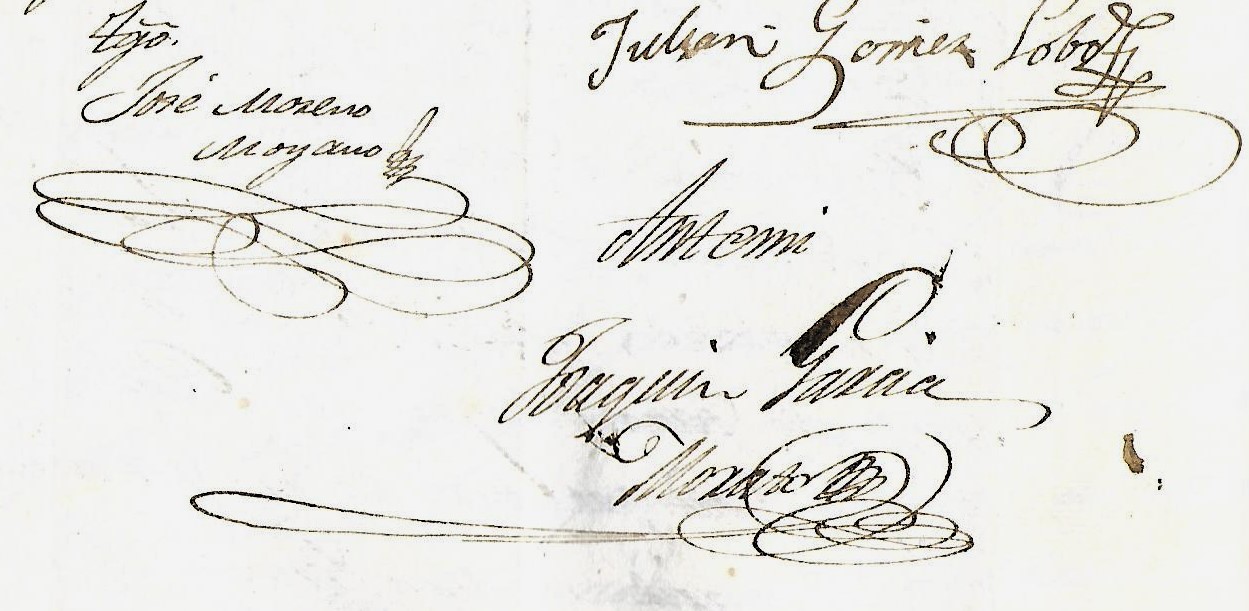 Tgõ.
José Moreno
Moyano
Julian Gomez Lobo
Antemi
Joaquin Garcia
Morato